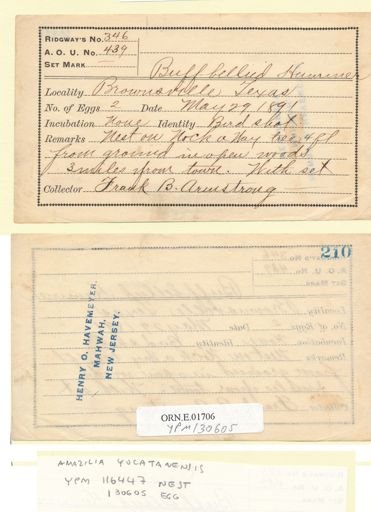 RIDGWAY'S No. 346
A. O. U. No. 439
SET MARK
Buff bellied Hummer
Locality Brownsville Texas
No. of Eggs 2 Date May 29 1891
Incubation none Identity Bird shot
Remarks Nest on Hock a Way tree 4 ft
from ground in open woods
3 miles from town. With set
Collector Frank B. Armstrong
210
HENRY O. HAVEMEYER,
MAHWAH,
NEW JERSEY.
ORN.E.01706
YPM130605
AMAZILIA YUCATANENSIS
YPM 116447 NEST
130605 EGG